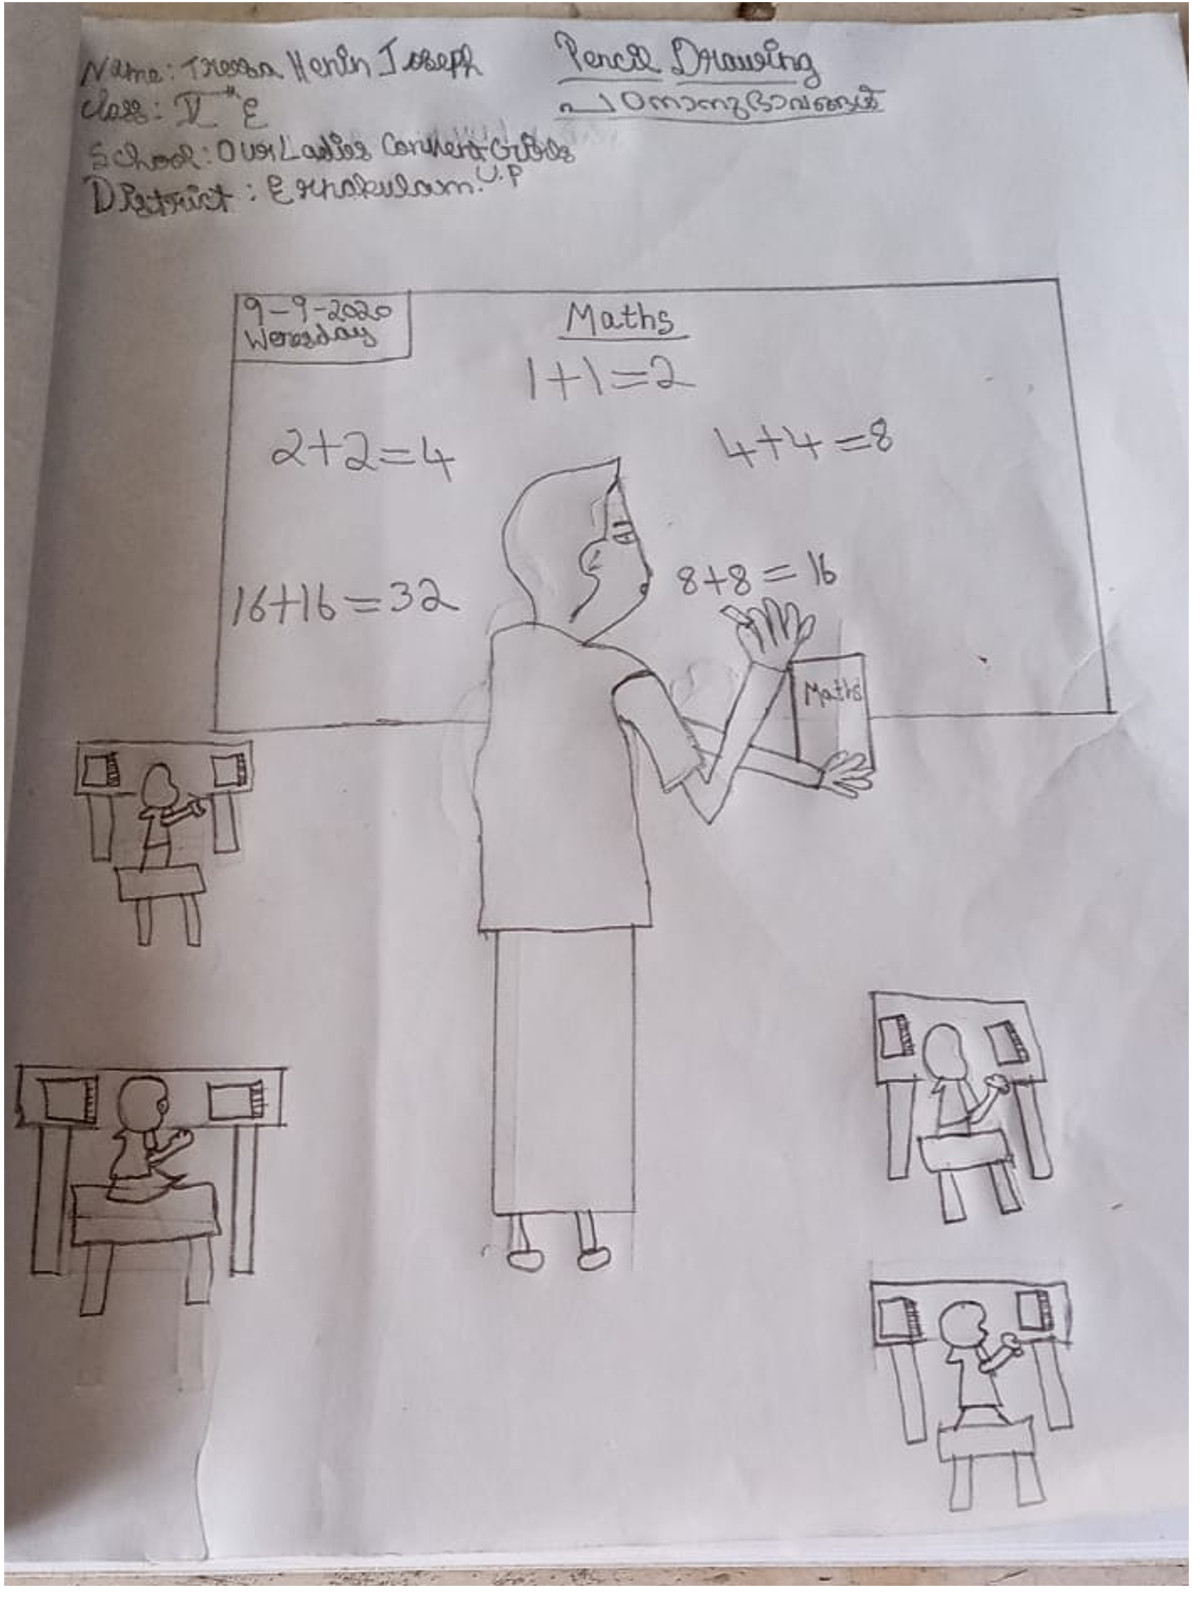 Name: Tressa Henin Joseph
Class: V E
School: Our Ladies Convent Girls
U.P
District: Ernakulam.
Pencil Drawing
പഠനാനുഭാവങ്ങൾ
9-9-2020
Maths
1+1=2
2+2=4
4+4=8
8+8=16
16+16=32
Maths